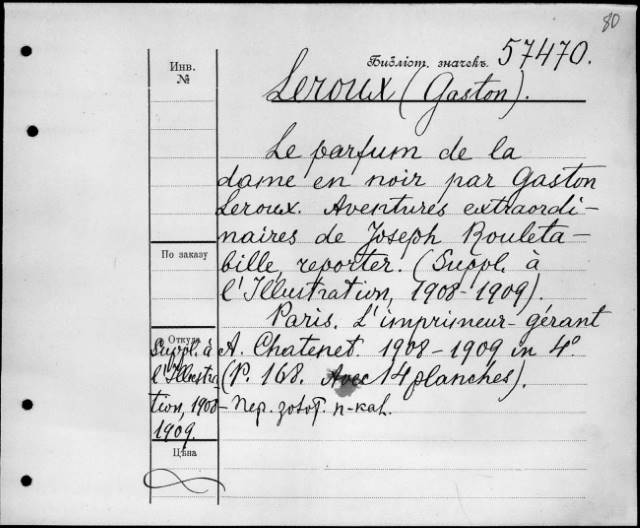 80
Библіот. значекъ 57470.
Инв.
№
Leroux (Gaston).
Le parfum de la
dame en noir par Gaston
Leroux. Aventures extraordi-
naires de Joseph Rouleta-
По заказу
bille, reporter. (Suppl. à
l'Illustration, 1908-1909).
Paris. L'imprimeur-gérant
Откуда
Suppl. à
l'Illustra-
tion, 1908-
1909.
A. Chatenet. 1908-1909 in 4º
(P. 168. Avec 14 planches).
Пер.
Цѣна